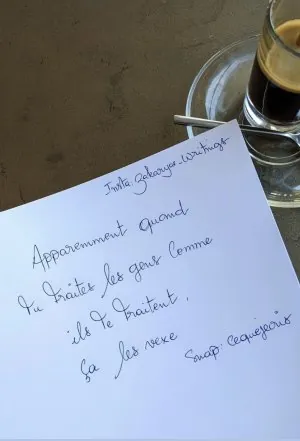 Insta: Zakaryae_writings
Apparemment quand
tu traites les gens comme
ils te traitent,
ça les vexe
Snap: Cequejecris